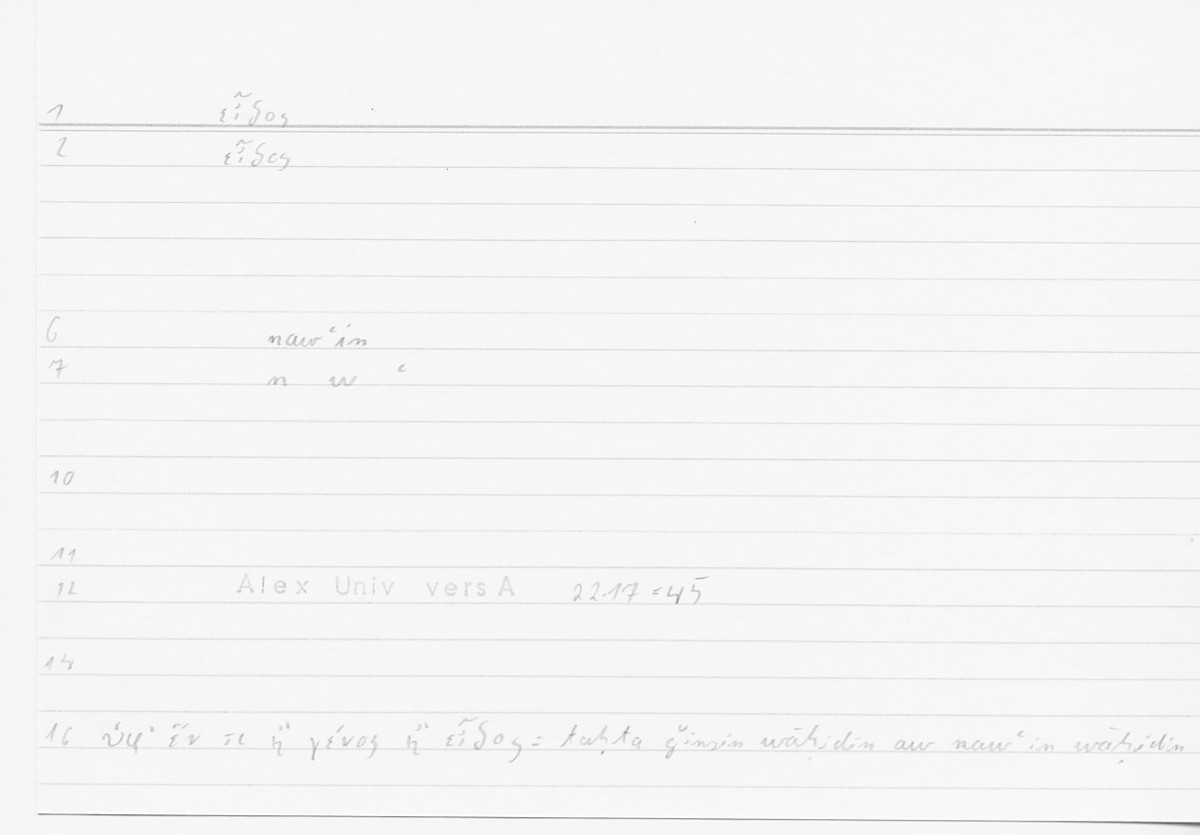 1 εἶδος
2 εἶδος
6 nawʿin
7 n w ʿ
10
11
12 Alex Univ vers A 22.17 = 45
14
16 ὑφ' ἕν τι ἢ γένος ἢ εἶδος = taḥta ǧinsin wāḥidin aw nawʿin wāḥidin